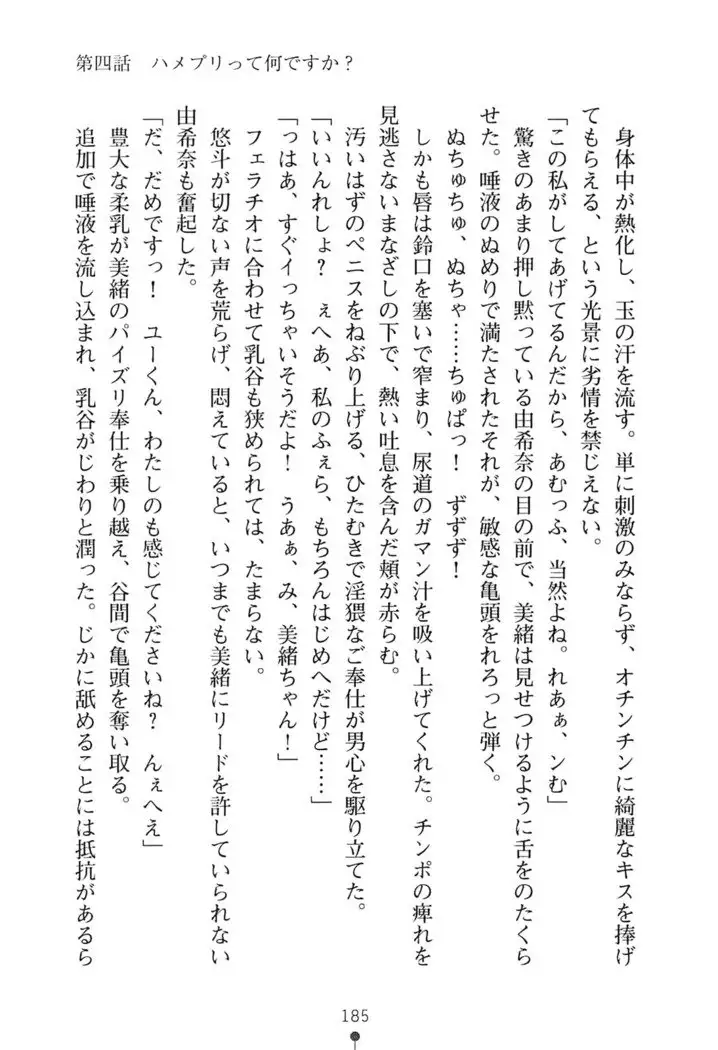 第四話　ハメプリって何ですか？
身体中が熱化し、玉の汗を流す。単に刺激のみならず、オチンチンに綺麗なキスを捧げ
てもらえる、という光景に劣情を禁じえない。
「この私がしてあげてるんだから、あむっふ、当然よね。れあぁ、ンむ」
驚きのあまり押し黙っている由希奈の目の前で、美緒は見せつけるように舌をのたくら
せた。唾液のぬめりで満たされたそれが、敏感な亀頭をれろっと弾く。
ぬちゅちゅ、ぬちゃ……ちゅぱっ！　ずずず！
しかも唇は鈴口を塞いで窄まり、尿道のガマン汁を吸い上げてくれた。チンポの痺れを
見逃さないまなざしの下で、熱い吐息を含んだ頬が赤らむ。
汚いはずのペニスをねぶり上げる、ひたむきで淫猥なご奉仕が男心を駆り立てた。
「いいんれしょ？　ぇへあ、私のふぇら、もちろんはじめへだけど……」
「っはあ、すぐイっちゃいそうだよ！　うあぁ、み、美緒ちゃん！」
フェラチオに合わせて乳谷も狭められては、たまらない。
悠斗が切ない声を荒らげ、悶えていると、いつまでも美緒にリードを許していられない
由希奈も奮起した。
「だ、だめですっ！　ユーくん、わたしのも感じてくださいね？　んぇへえ」
豊大な柔乳が美緒のパイズリ奉仕を乗り越え、谷間で亀頭を奪い取る。
追加で唾液を流し込まれ、乳谷がじわりと潤った。じかに舐めることには抵抗があるら
185